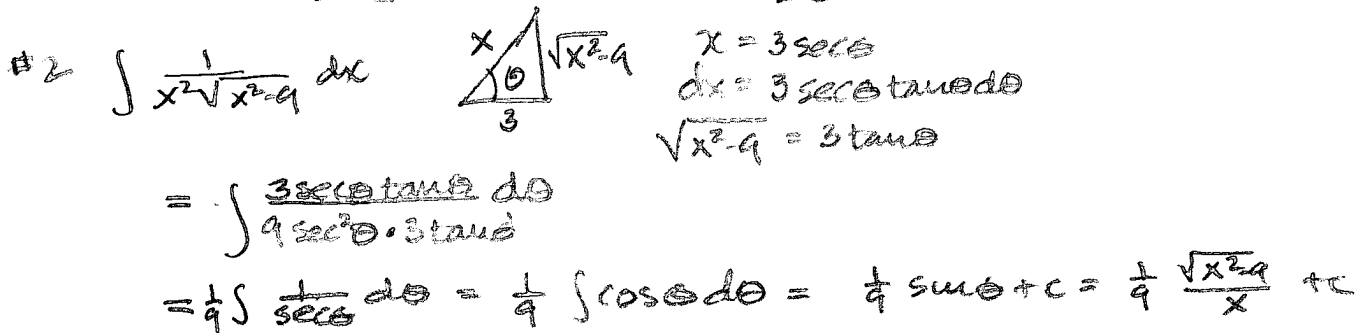 #2 ∫ 1/(x²√(x²-9)) dx   x   θ   3   √(x²-9)   x = 3 secθ
dx = 3 secθ tanθ dθ
√(x²-9) = 3 tanθ
= ∫ (3 secθ tanθ dθ)/(9 sec²θ · 3 tanθ)
= 1/9 ∫ 1/secθ dθ = 1/9 ∫ cosθ dθ = 1/9 sinθ + c = 1/9 √(x²-9)/x + c